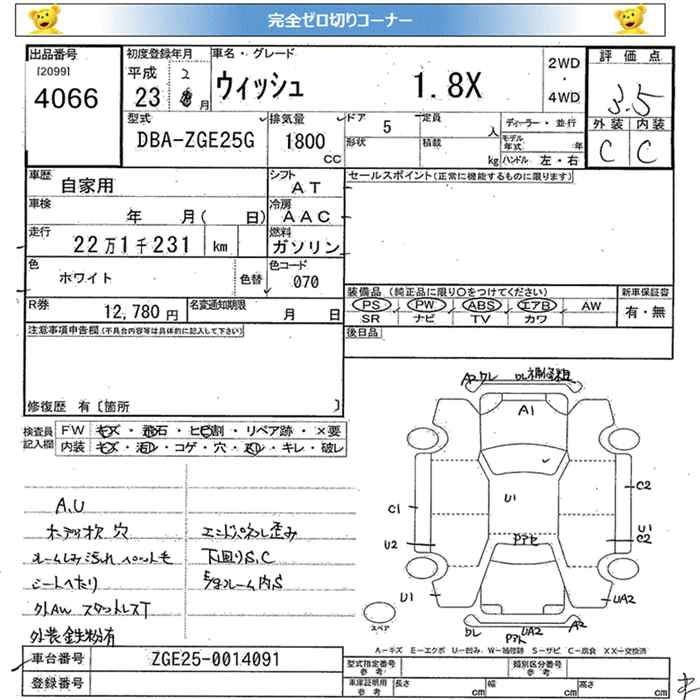 完全ゼロ切りコーナー
出品番号 初度登録年月 車名・グレード 評価点
[2099] 平成 2 ウィッシュ 1.8X 2WD・4WD 3.5
4066 23 月
型式 排気量 ドア 5 定員 人 ディーラー・並行 外装 内装
DBA-ZGE25G 1800 CC 形状 積載 kg モデル年式 年 C C
ハンドル 左・右
車歴 自家用 シフト AT セールスポイント(正常に機能するものに限ります)
車検 年 月( 日) 冷房 AAC
走行 22万1千231 km 燃料 ガソリン
色 ホワイト 色替 色コード 070
装備品 (純正品に限り○をつけてください) 新車保証書
R券 12,780円 名変通知期限 月 日 PS PW ABS エアB AW 有・無
SR ナビ TV カワ
注意事項申告欄(不具合内容等は具体的に記入して下さい) 後日品
修復歴 有〔箇所 〕
検査員記入欄 FW キズ・飛石・ヒビ割・リペア跡・×要
内装 キズ・汚れ・コゲ・穴・スレ・キレ・破レ
A1
A.U
穴 エンドパネル歪み
下回りS.C
シートヘたり
外AW スタットレスT
外装鉄粉有
U1
C1 C2
U2 U1
C2
U1 UA2
UA2 A2
スペア
A-キズ E-エクボ U-凹み W-補修跡 S-サビ C-腐食 XX-交換済
車台番号 ZGE25-0014091
登録番号
型式指定番号 参考 類別区分番号 参考
車庫証明用 参考 長さ cm 幅 cm 高さ cm